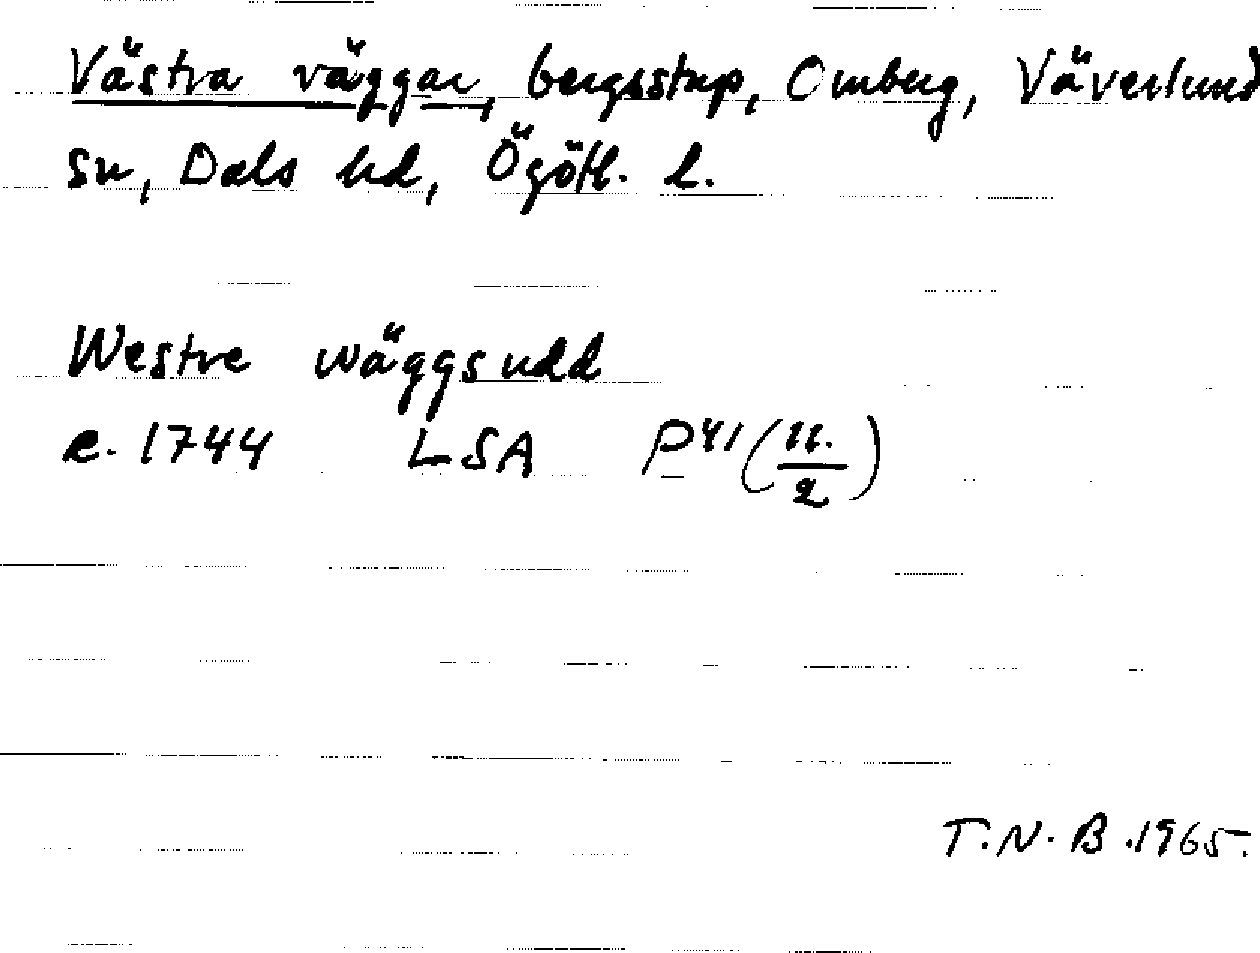 Västra väggar, bergsstup, Omberg, Väverlund
sn, Dals hd, Ögötl. l.
Westre wäggsudd
c. 1744 LSA P41(11./2)
T.N.B. 1965.